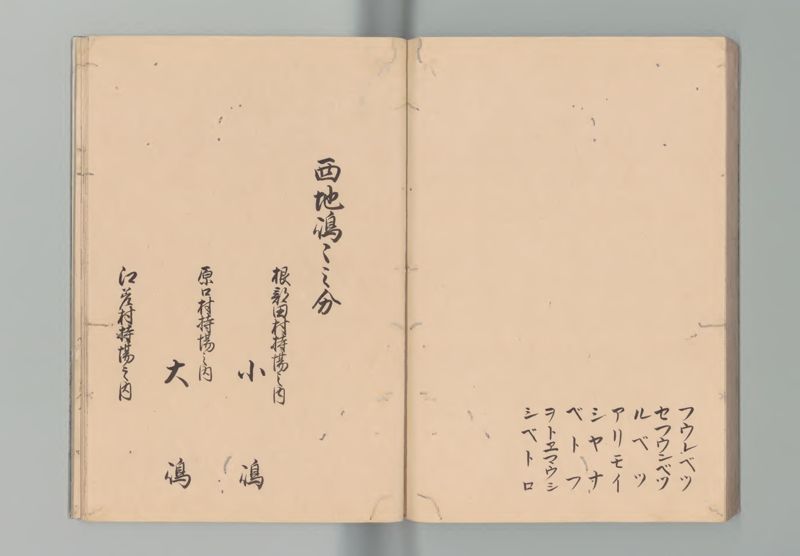 フウレベツ
セフウンベツ
ルベツ
アリモイ
シヤナ
ベトフ
ヲトヱマウシ
シベトロ
西地嶋〻之分
根部田村持場之内
小嶋
原口村持場之内
大嶋
江差村持場之内